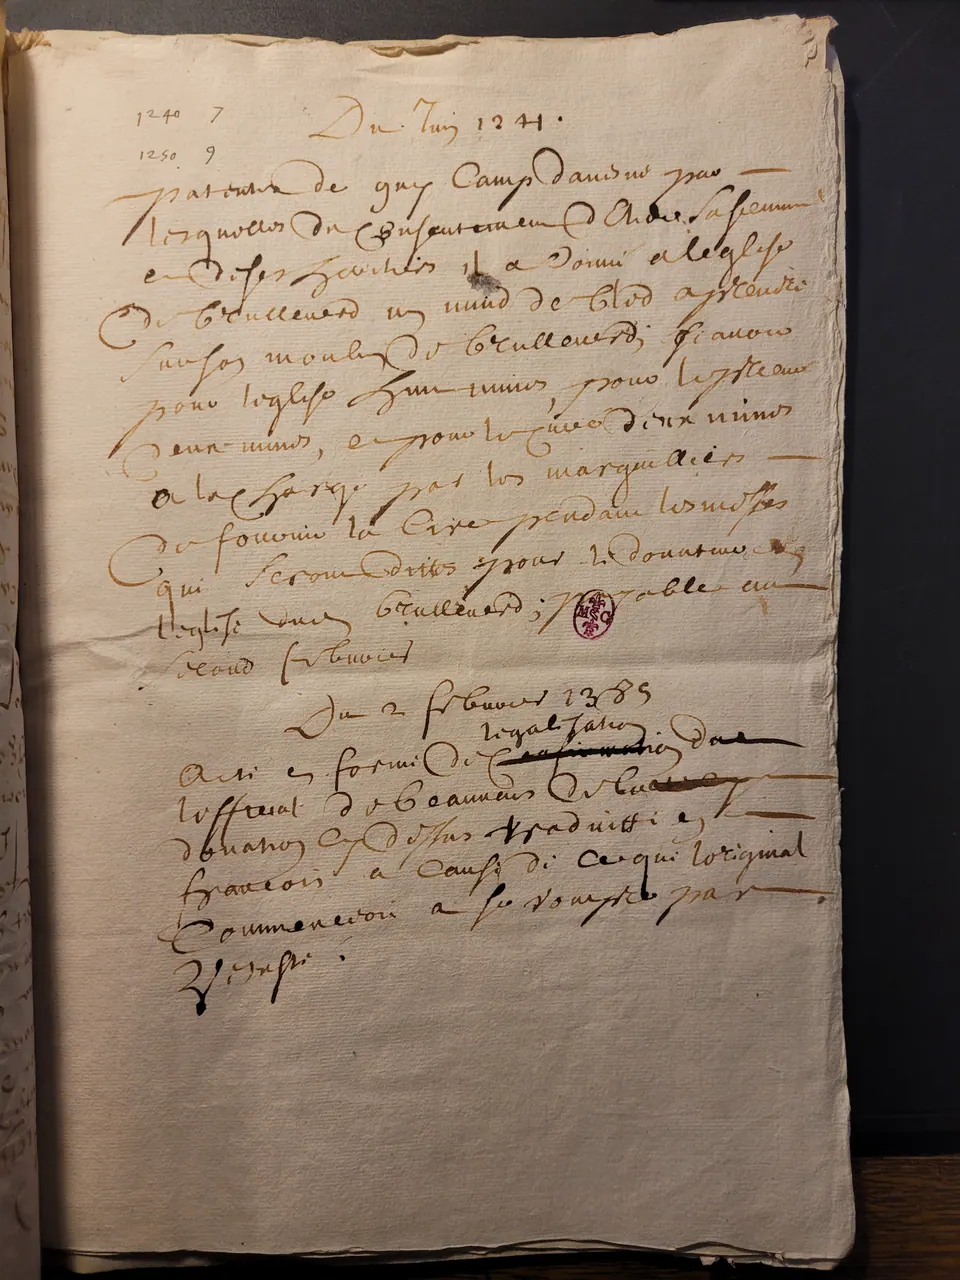 1240 7
1250 9
Du Juin 1241.
patentes de guy Camp Davesne par
lesquelles du Consentement d'Elidie sa femme
et de ses heritiers il a donné a l'eglise
de brulleverd un muid de bled a prendre
sur son moulin de brulleverd; scavoir
pour l'eglise huit mines, pour le prieur
deux mines, et pour le curé deux mines
a la charge par les marguilliers
de fournir la Cire pendant les messes
qui seront dittes pour le donateur en
l'eglise dud brulleverd; payable au
second febvrier
Du 2 febvrier 1385
legalisation
Acte en forme de confirmation de
l'official de beauvais de la
donation cy dessus traduitte en
francois a cause de ce que l'original
Commencoit a se rompre par
Vetusté.